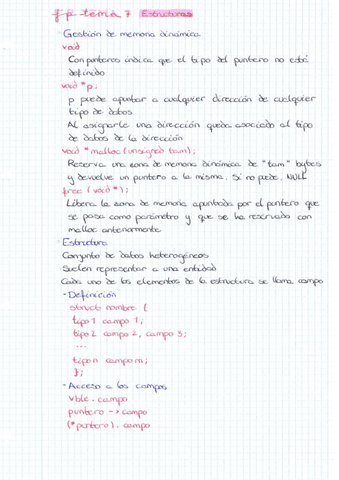 fp tema 7 Estructuras
· Gestión de memoria dinámica
void
Con punteros indica que el tipo del puntero no está
definido
void *p;
p puede apuntar a cualquier dirección de cualquier
tipo de datos
Al asignarle una dirección queda asociado al tipo
de datos de la dirección
void *malloc (unsigned tam);
Reserva una zona de memoria dinámica de "tam" bytes
y devuelve un puntero a la misma. Si no puede, NULL
free (void *);
Libera la zona de memoria apuntada por el puntero que
se pasa como parámetro y que se ha reservado con
malloc anteriormente
· Estructura
Conjunto de datos heterogéneos
Suelen representar a una entidad
Cada uno de los elementos de la estructura se llama campo
- Definición
struct nombre {
tipo 1 campo 1;
tipo 2 campo 2, campo 3;
...
tipo n campo m;
};
- Acceso a los campos
vble . campo
puntero -> campo
(*puntero) . campo